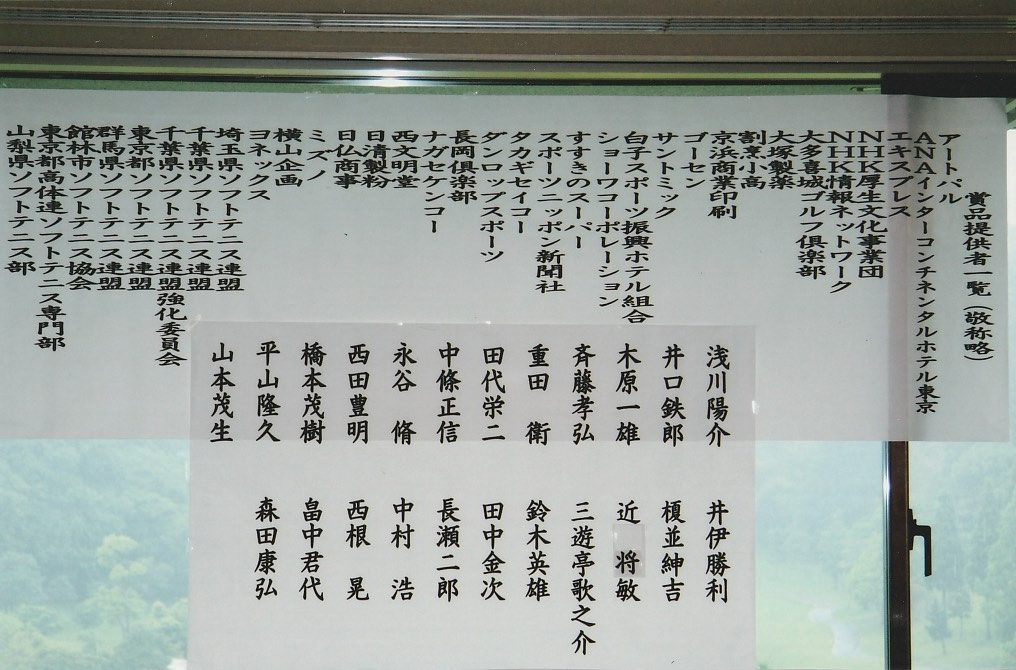 賞品提供者一覧（敬称略）
アートパル
ANAインターコンチネンタルホテル東京
エキスプレス
NHK厚生文化事業団
NHK情報ネットワーク
大多喜城ゴルフ倶楽部
大塚製薬
割烹小高
京浜商業印刷
ゴーセン
サントミック
白子スポーツ振興ホテル組合
ショーワコーポレーション
すすきのスーパー
スポーツニッポン新聞社
タカギセイコー
ダンロップスポーツ
長岡倶楽部
ナガセケンコー
西文明堂
日清製粉
日仏商事
ミズノ
横山企画
ヨネックス
埼玉県ソフトテニス連盟
千葉県ソフトテニス連盟
千葉県ソフトテニス連盟強化委員会
東京都ソフトテニス連盟
群馬県ソフトテニス連盟
館林市ソフトテニス協会
東京都高体連ソフトテニス専門部
山梨県ソフトテニス部
浅川陽介
井口鉄郎
木原一雄
斉藤孝弘
重田 衛
田代栄二
中條正信
永谷 脩
西田豊明
橋本茂樹
平山隆久
山本茂生
井伊勝利
榎並紳吉
近 将敏
三遊亭歌之介
鈴木英雄
田中金次
長瀬二郎
中村 浩
西根 晃
畠中君代
森田康弘